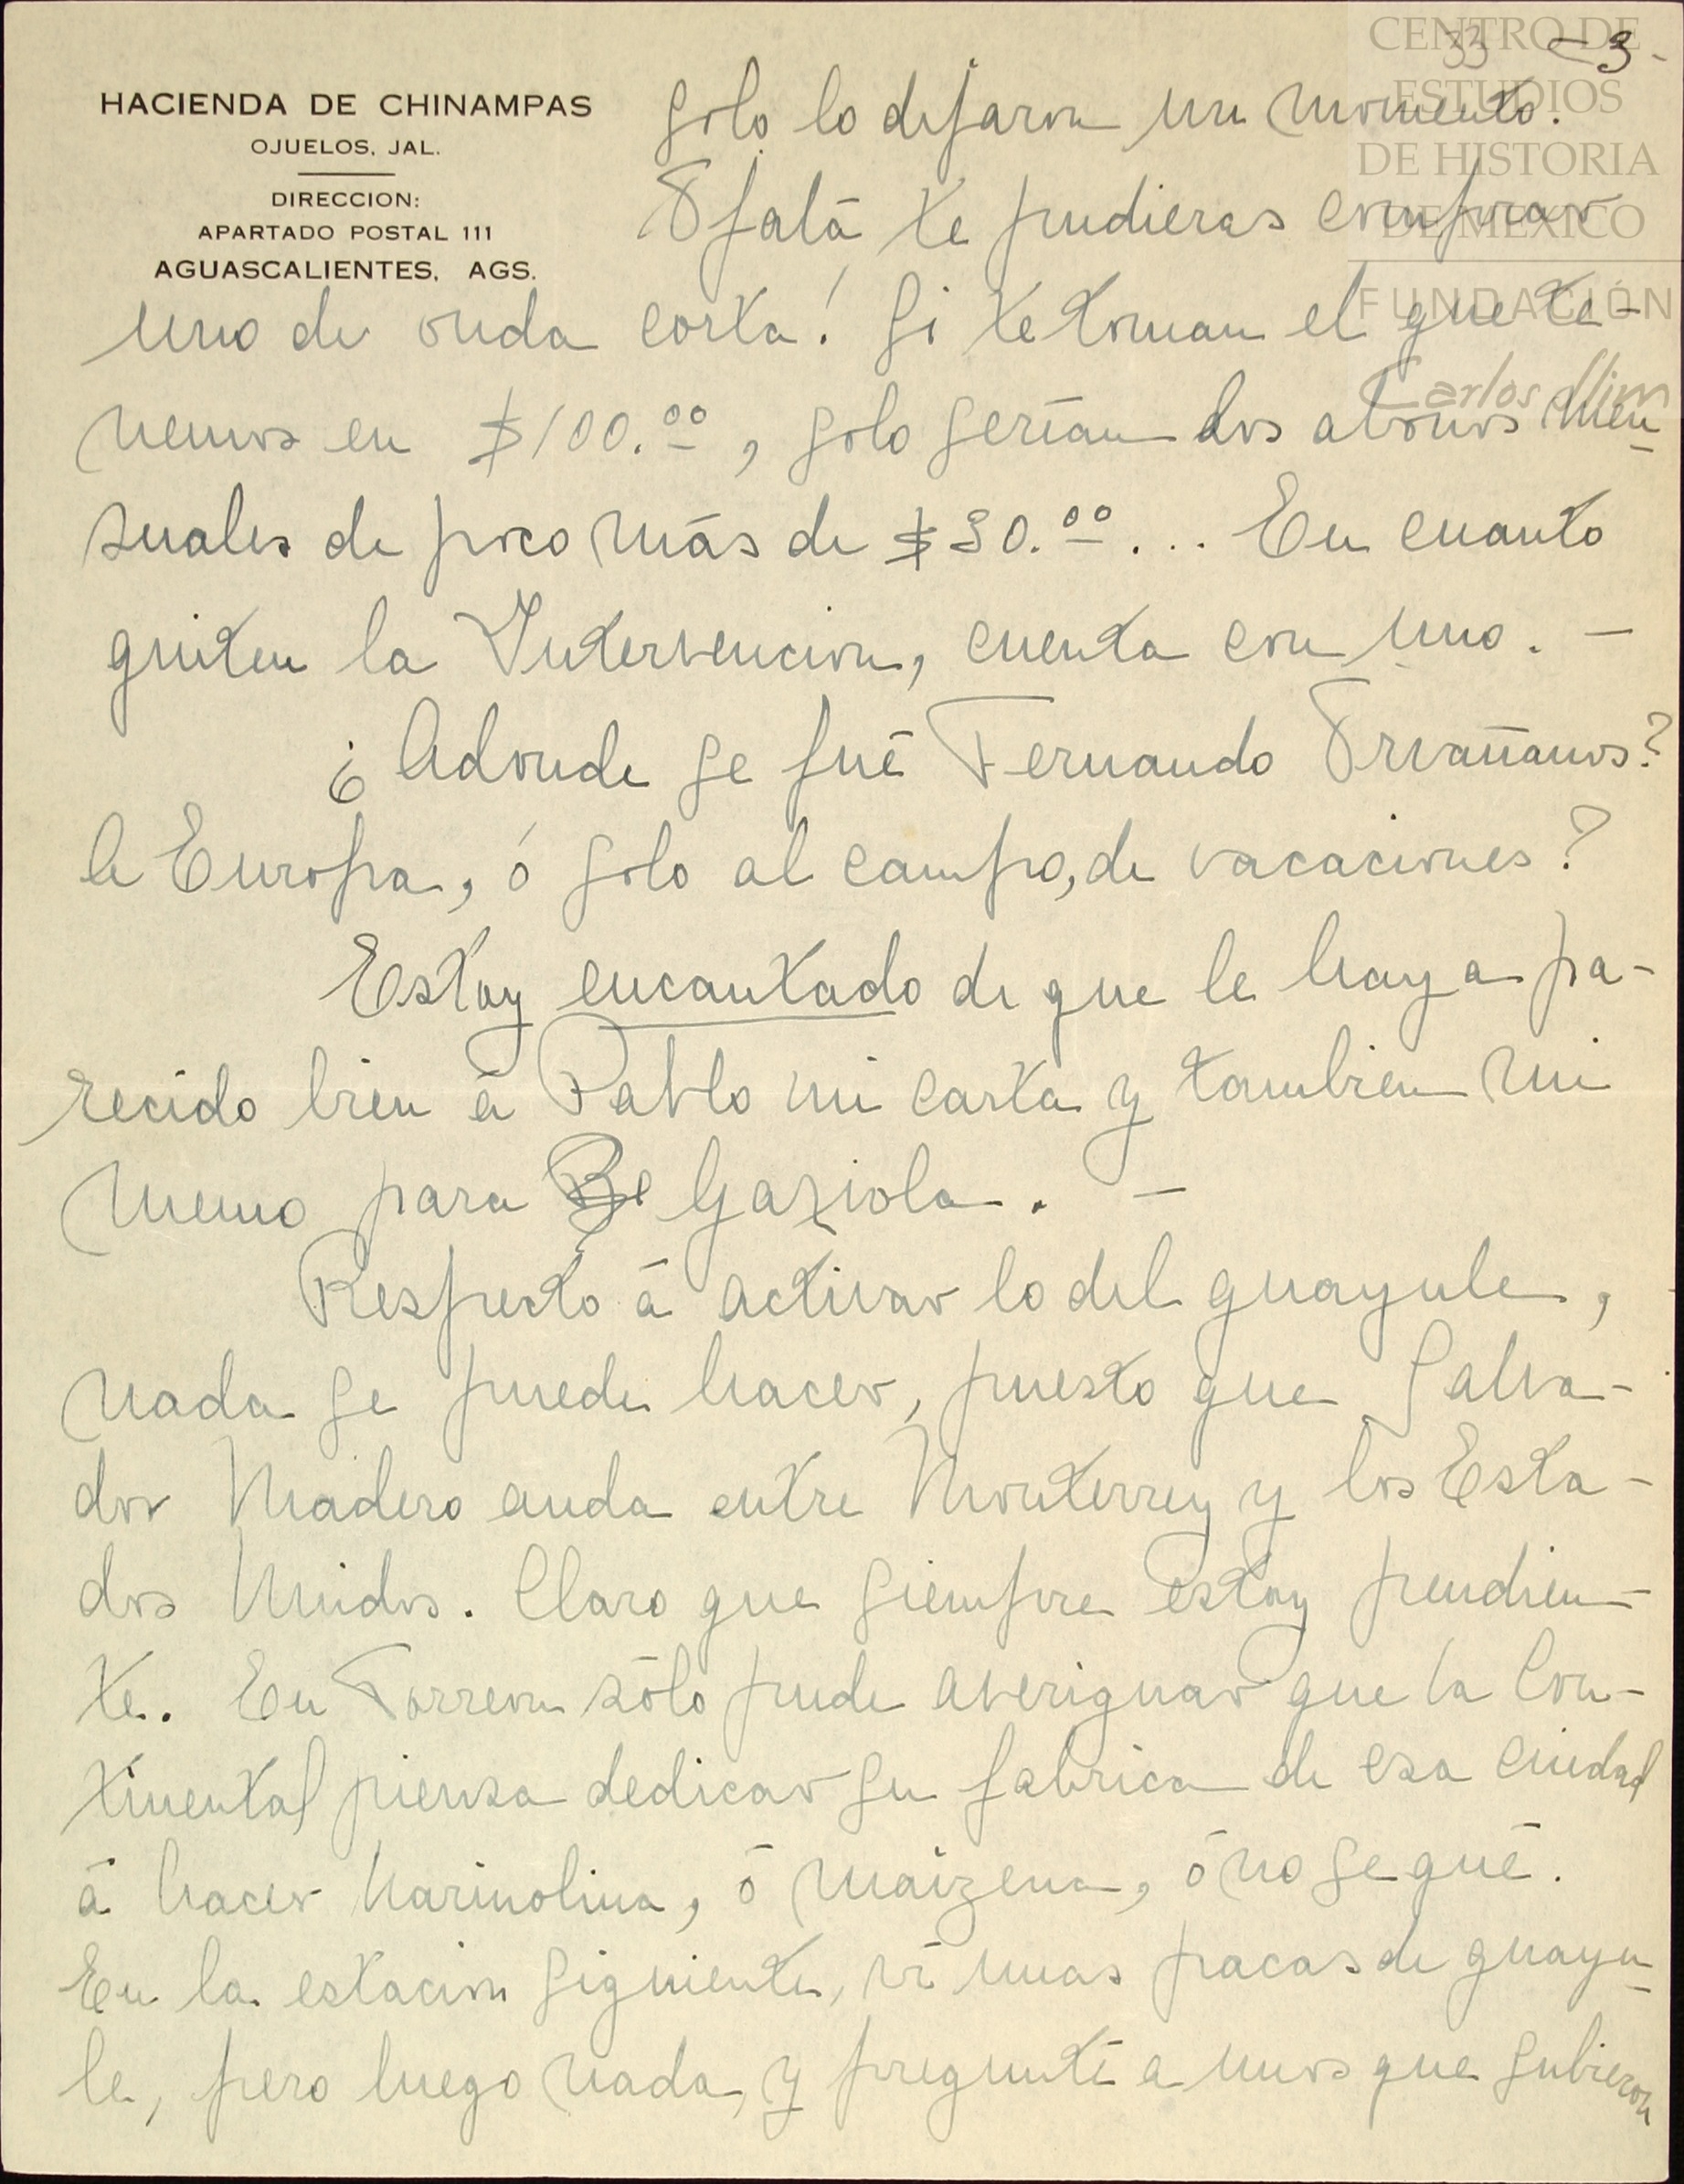 CENTRO DE
ESTUDIOS
DE HISTORIA
DE MEXICO
FUNDACIÓN
Carlos Slim
33 - 3 -
HACIENDA DE CHINAMPAS
OJUELOS, JAL.
DIRECCION:
APARTADO POSTAL 111
AGUASCALIENTES, AGS.
solo lo dejaron un momento.
Ojalá te pudieras comprar
uno de onda corta! Si te toman el que te-
nemos en $100.00, solo serían dos abonos men-
suales de poco más de $30.00... En cuanto
quiten la Intervencion, cuenta con uno. —
¿Adonde se fué Fernando Orvañanos?
a Europa, ó solo al campo, de vacaciones?
Estoy encantado de que le haya pa-
recido bien á Pablo mi carta y tambien mi
memo para Be Gaxiola. —
Respecto á activar lo del guayule,
nada se puede hacer, puesto que Salva-
dor Madero anda entre Monterrey y los Esta-
dos Unidos. Claro que siempre estoy pendien-
te. En Torreon sólo pude averiguar que la Con-
tinental piensa dedicar su fabrica de esa ciudad
á hacer harinolina, ó maizena, ó no se qué.
En la estacion siguiente, ví unas pacas de guayu-
le, pero luego nada, y pregunté a unos que subieron